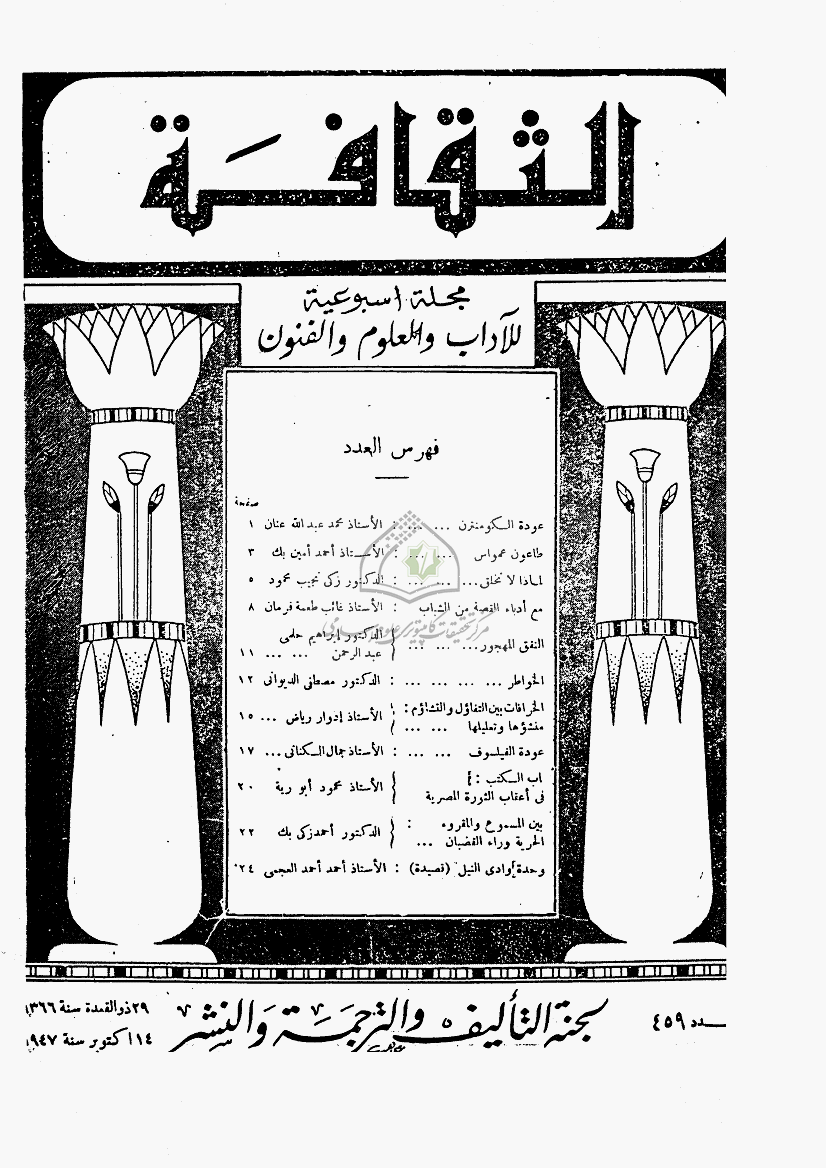 الثقافة
مجلة اسبوعية
للآداب والعلوم والفنون
فهرس العدد
صفحة
عودة الكومنترن ... ... : الأستاذ محمد عبد الله عنان ١
طاعون عمواس ... ... : الأستاذ أحمد أمين بك ٣
لماذا لا نخلق ... ... ... : الدكتور زكى نجيب محمود ٥
مع أدباء القصة من الشباب : الأستاذ غائب طعمة فرمان ٨
النفق المهجور ... ... ... { الدكتور إبراهيم حلمى
عبد الرحمن ... ... ١١
الخواطر ... ... ... ... : الدكتور مصطفى الديوانى ١٢
الخرافات بين التفاؤل والتشاؤم :
منشؤها وتعليلها ... ... { الأستاذ إدوار رياض ... ١٥
عودة الفيلسوف ... ... : الأستاذ جمال الكنانى ... ١٧
اب الكتب :
فى أعقاب الثورة المصرية { الأستاذ محمود أبو رية ٢٠
بين المسموع والمقروء :
الحرية وراء القضبان ... { الدكتور أحمد زكى بك ٢٢
وحدة وادى النيل (قصيدة) : الأستاذ أحمد أحمد العجمى ٢٤
مركز تحقيقات كامپيوترى علوم اسلامى
ـدد ٤٥٩
لجنة التأليف والترجمة والنشر
٢٩ ذو القعدة سنة ١٣٦٦
١٤ اكتوبر سنة ١٩٤٧